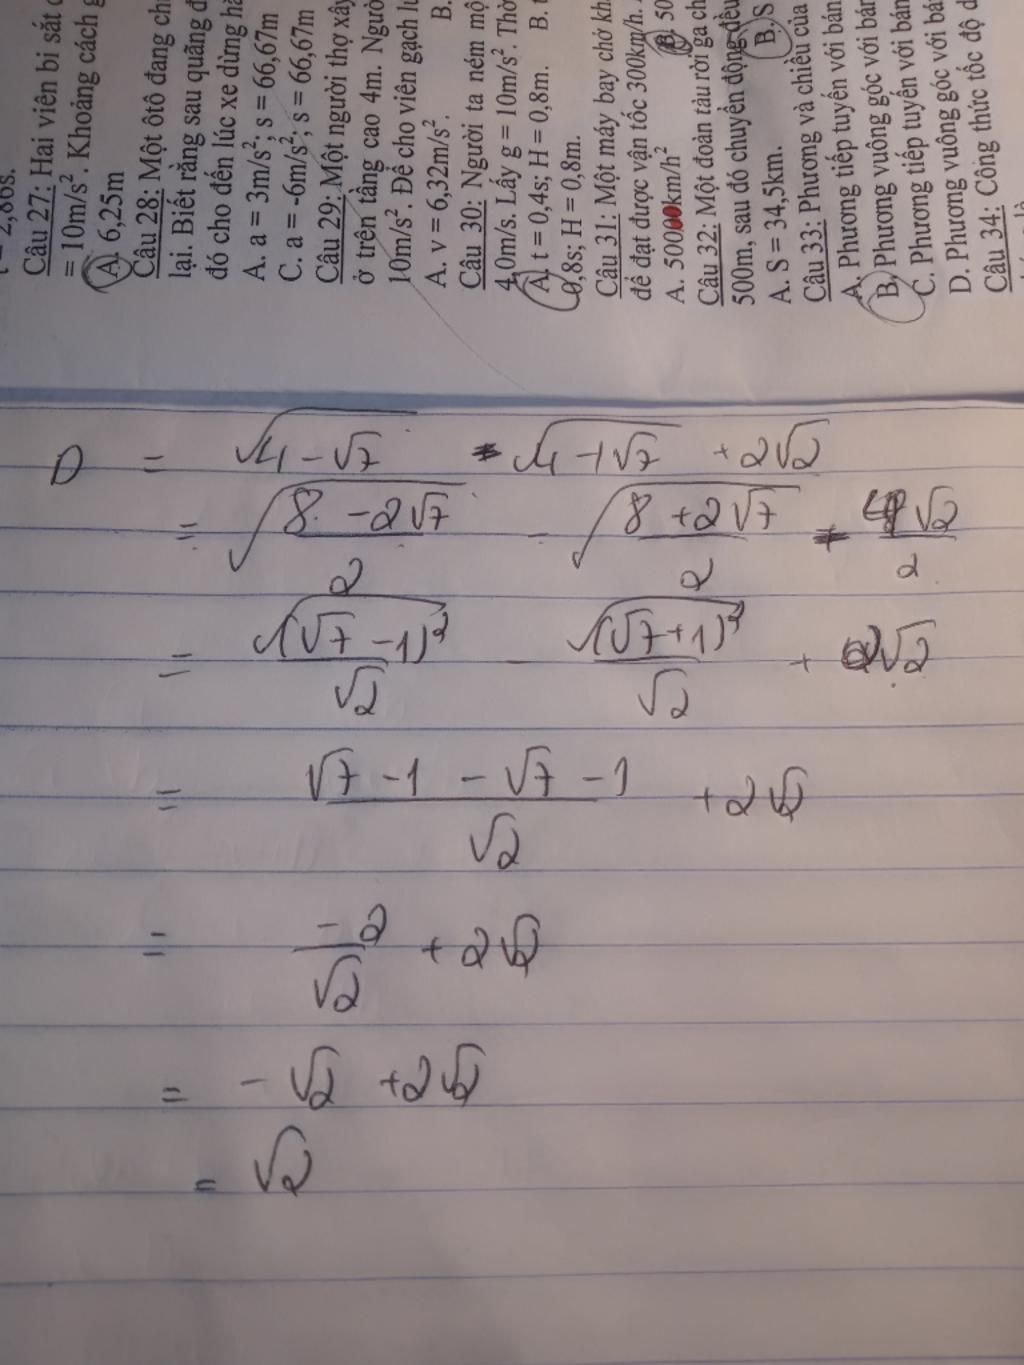 2,86s.
Câu 27: Hai viên bi sắt
= 10m/s². Khoảng cách
A. 6,25m
Câu 28: Một ôtô đang
lại. Biết rằng sau quãng
đó cho đến lúc xe dừng
A. a = 3m/s²; s = 66,67m
C. a = -6m/s²; s = 66,67m
Câu 29: Một người thợ xây
ở trên tầng cao 4m. Ngườ
10m/s². Để cho viên gạch
A. v = 6,32m/s². B.
Câu 30: Người ta ném mộ
4,0m/s. Lấy g = 10m/s². Thờ
A. t = 0,4s; H = 0,8m. B.
0,8s; H = 0,8m.
Câu 31: Một máy bay chở
để đạt được vận tốc 300km/h.
A. 50000km/h² B. 50
Câu 32: Một đoàn tàu rời ga
500m, sau đó chuyển động đều
A. S = 34,5km. B. S
Câu 33: Phương và chiều của
A. Phương tiếp tuyến với bán
B. Phương vuông góc với bán
C. Phương tiếp tuyến với bán
D. Phương vuông góc với bá
Câu 34: Công thức tốc độ
D = √(4 - √7) - √(4 + √7) + 2√2
= √((8 - 2√7)/2) - √((8 + 2√7)/2) + 4√2/2
= √(√7 - 1)²/√2 - √(√7 + 1)²/√2 + 2√2
= (√7 - 1 - √7 - 1)/√2 + 2√2
= -2/√2 + 2√2
= - √2 + 2√2
= √2